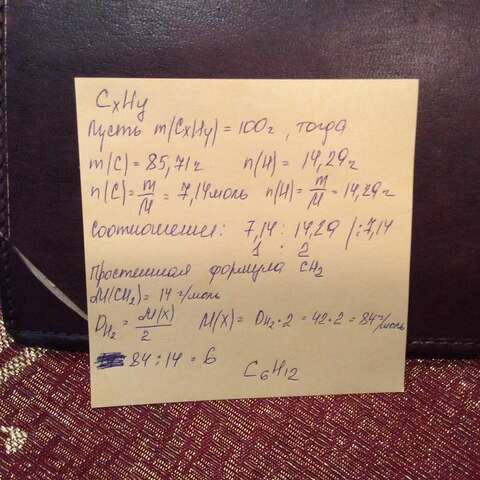 CxHy
Пусть m(CxHy) = 100г, тогда
m(C) = 85,71г n(H) = 14,29г
n(C) = m/M = 7,14моль n(H) = m/M = 14,29г
Соотношение: 7,14 : 14,29 |:7,14
1 : 2
Простейшая формула CH2
M(CH2) = 14 г/моль
DH2 = M(X)/2 M(X) = DH2·2 = 42·2 = 84г/моль
84 : 14 = 6
C6H12